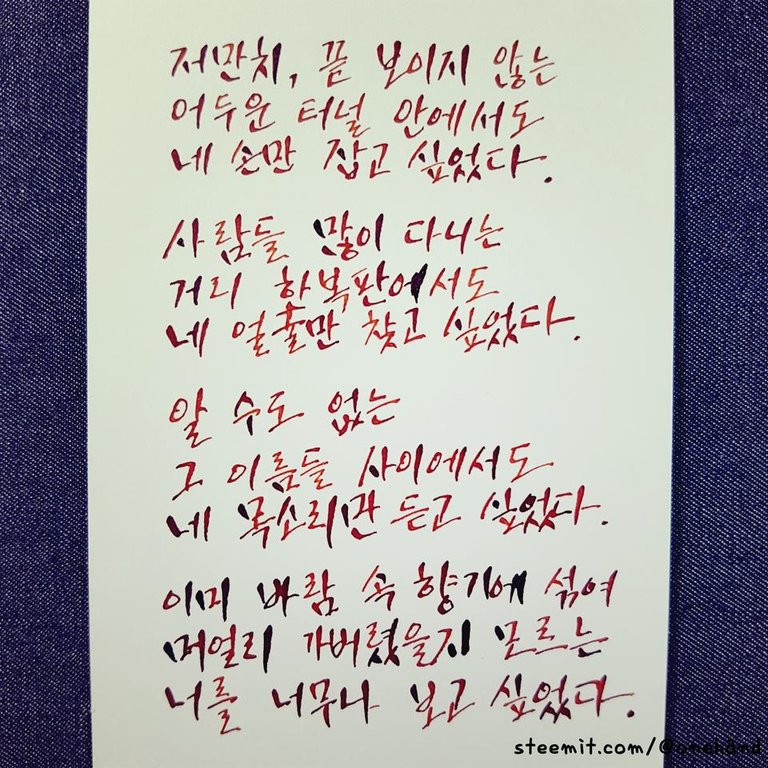 저만치, 끝 보이지 않는
어두운 터널 안에서도
네 손만 잡고 싶었다.
사람들 많이 다니는
거리 한복판에서도
네 얼굴만 찾고 싶었다.
알 수도 없는
그 이름들 사이에서도
네 목소리만 듣고 싶었다.
이미 바람 속 향기에 섞여
머얼리 가버렸을지 모르는
너를 너무나 보고 싶었다.
steemit.com/@onehand